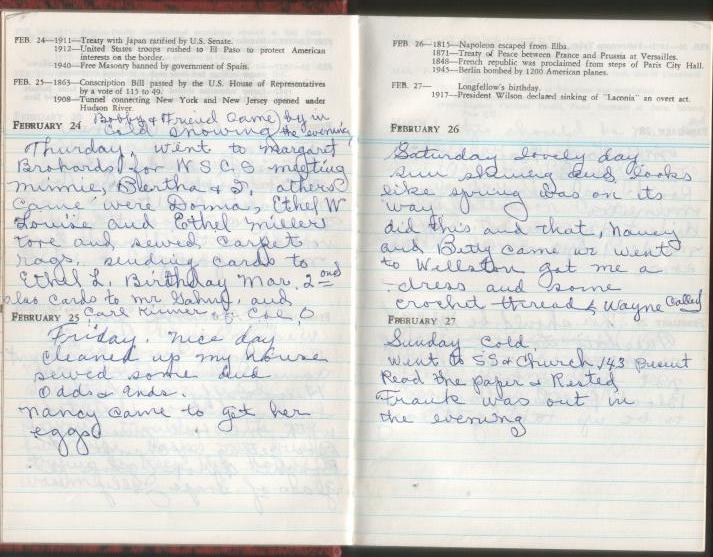 FEB. 24—1911—Treaty with Japan ratified by U.S. Senate.
1912—United States troops rushed to El Paso to protect American
interests on the border.
1940—Free Masonry banned by government of Spain.
FEB. 25—1863—Conscription Bill passed by the U.S. House of Representatives
by a vote of 115 to 49.
1908—Tunnel connecting New York and New Jersey opened under
Hudson River.
Bobby & Friend Came by in
the evening
FEBRUARY 24
Cold snowing
Thurday, went to Margaret
Brohards for W S C S meeting
minnie, Bertha & I. others
Came were Donna, Ethel W
Louise and Ethel Millers
tore and sewed carpet
rags, sending cards to
Ethel L. Birthday Mar. 2nd
also cards to mr Gahm, and
Carl
FEBRUARY 25
Friday. nice day
cleaned up my house
sewed some and
Odds & Ends.
nancy came to get her
eggs
FEB. 26—1815—Napoleon escaped from Elba.
1871—Treaty of Peace between France and Prussia at Versailles.
1848—French republic was proclaimed from steps of Paris City Hall.
1945—Berlin bombed by 1200 American planes.
FEB. 27— Longfellow's birthday.
1917—President Wilson declared sinking of "Laconia" an overt act.
FEBRUARY 26
Saturday lovely day
sun shining and looks
like spring was on its
way
did this and that, Nancy
and Betty came we went
to Wellston got me a
dress and some
crochet thread, Wayne Called
FEBRUARY 27
Sunday Cold.
Went to SS & Church 143 present
Read the paper & Rested
Frank was out in
the evening